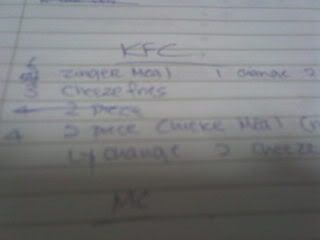 KFC
Zinger Meal 1 change 2
3 Cheeze fries
2 piece
4 2 piece Chicke Meal
1 change 2 cheeze
MC